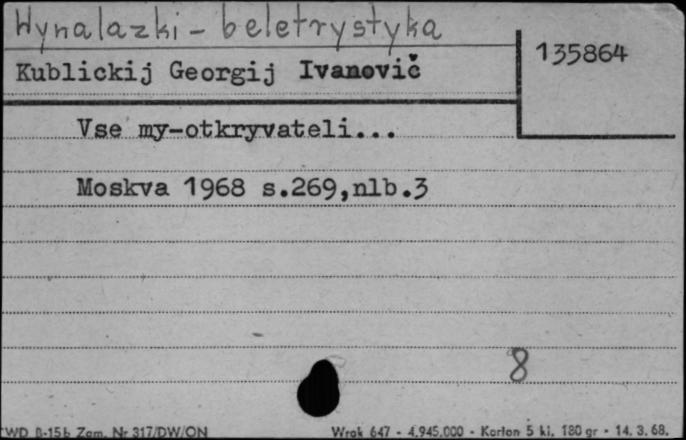 Wynalazki - beletrystyka
135864
Kublickij Georgij Ivanovič
Vse my-otkryvateli...
Moskva 1968 s.269,nlb.3
8
CWD B-15b Zam. Nr 317/DW/ON
Wrok 647 - 4.945.000 - Karton 5 kl. 180 gr - 14. 3. 68.